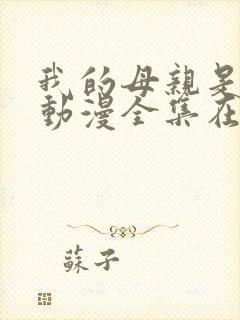 我的母親是
動漫全集在
蘇子